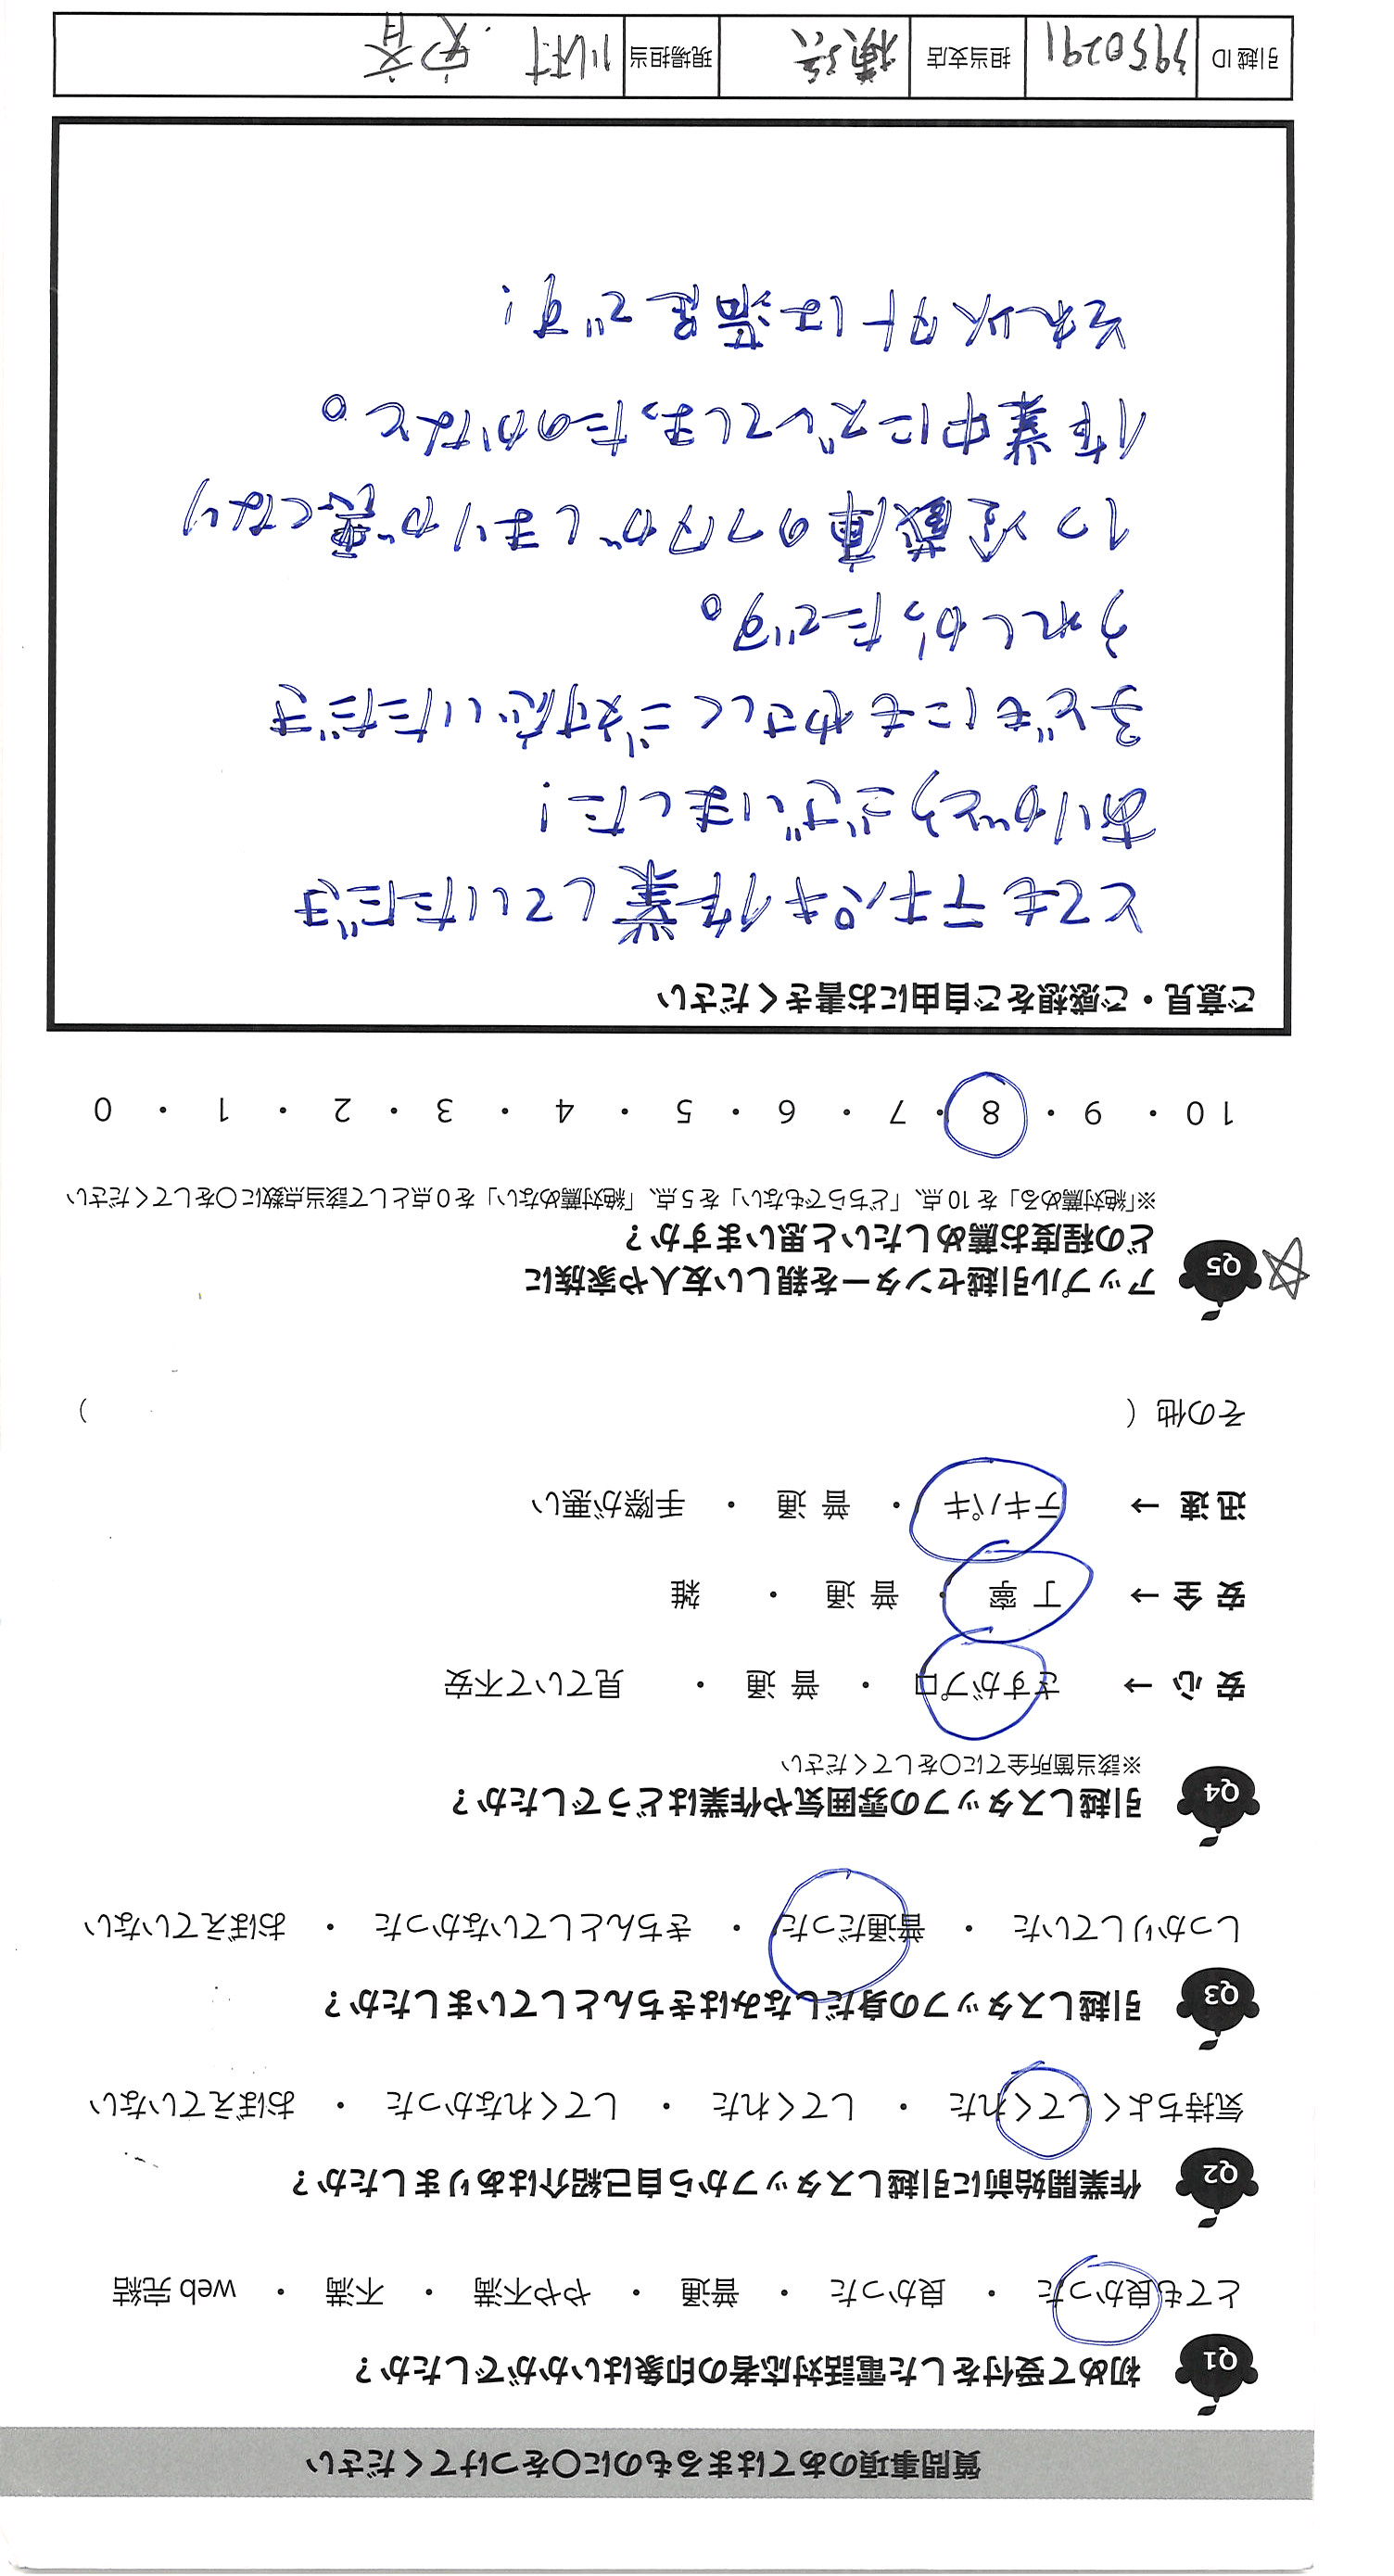 質問事項のあてはまるものに〇をつけてください
Q1 初めて受付をした電話対応者の印象はいかがでしたか？
とても良かった ・ 良かった ・ 普通 ・ やや不満 ・ 不満 ・ web 完結
Q2 作業開始前に引越しスタッフから自己紹介はありましたか？
気持ちよくしてくれた ・ してくれた ・ してくれなかった ・ おぼえていない
Q3 引越しスタッフの身だしなみはきちんとしていましたか？
しっかりしていた ・ 普通だった ・ きちんとしていなかった ・ おぼえていない
Q4 引越しスタッフの雰囲気や作業はどうでしたか？
※該当箇所全てに〇をしてください
安 心 → さすがプロ ・ 普 通 ・ 見ていて不安
安 全 → 丁 寧 ・ 普 通 ・ 雑
迅 速 → テキパキ ・ 普 通 ・ 手際が悪い
その他（ ）
☆ Q5 アップル引越センターを親しい友人や家族に
どの程度お薦めしたいと思いますか？
※「絶対薦める」を 10 点、「どちらでもない」を 5 点、「絶対薦めない」を 0 点として該当点数に〇をしてください
10 ・ 9 ・ 8 ・ 7 ・ 6 ・ 5 ・ 4 ・ 3 ・ 2 ・ 1 ・ 0
ご意見・ご感想をご自由にお書きください
とてもテキパキ作業していただき
ありがとうございました！
子どもにもやさしくご対応いただき
うれしかったです。
1つ冷蔵庫のフタがしまりが悪くなり
作業中にズレてしまったのかなと。
それ以外は満足です！
引越 ID 3950291 担当支店 横浜 現場担当 川村